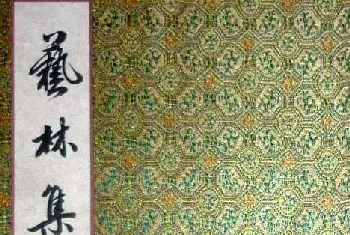 藝林集